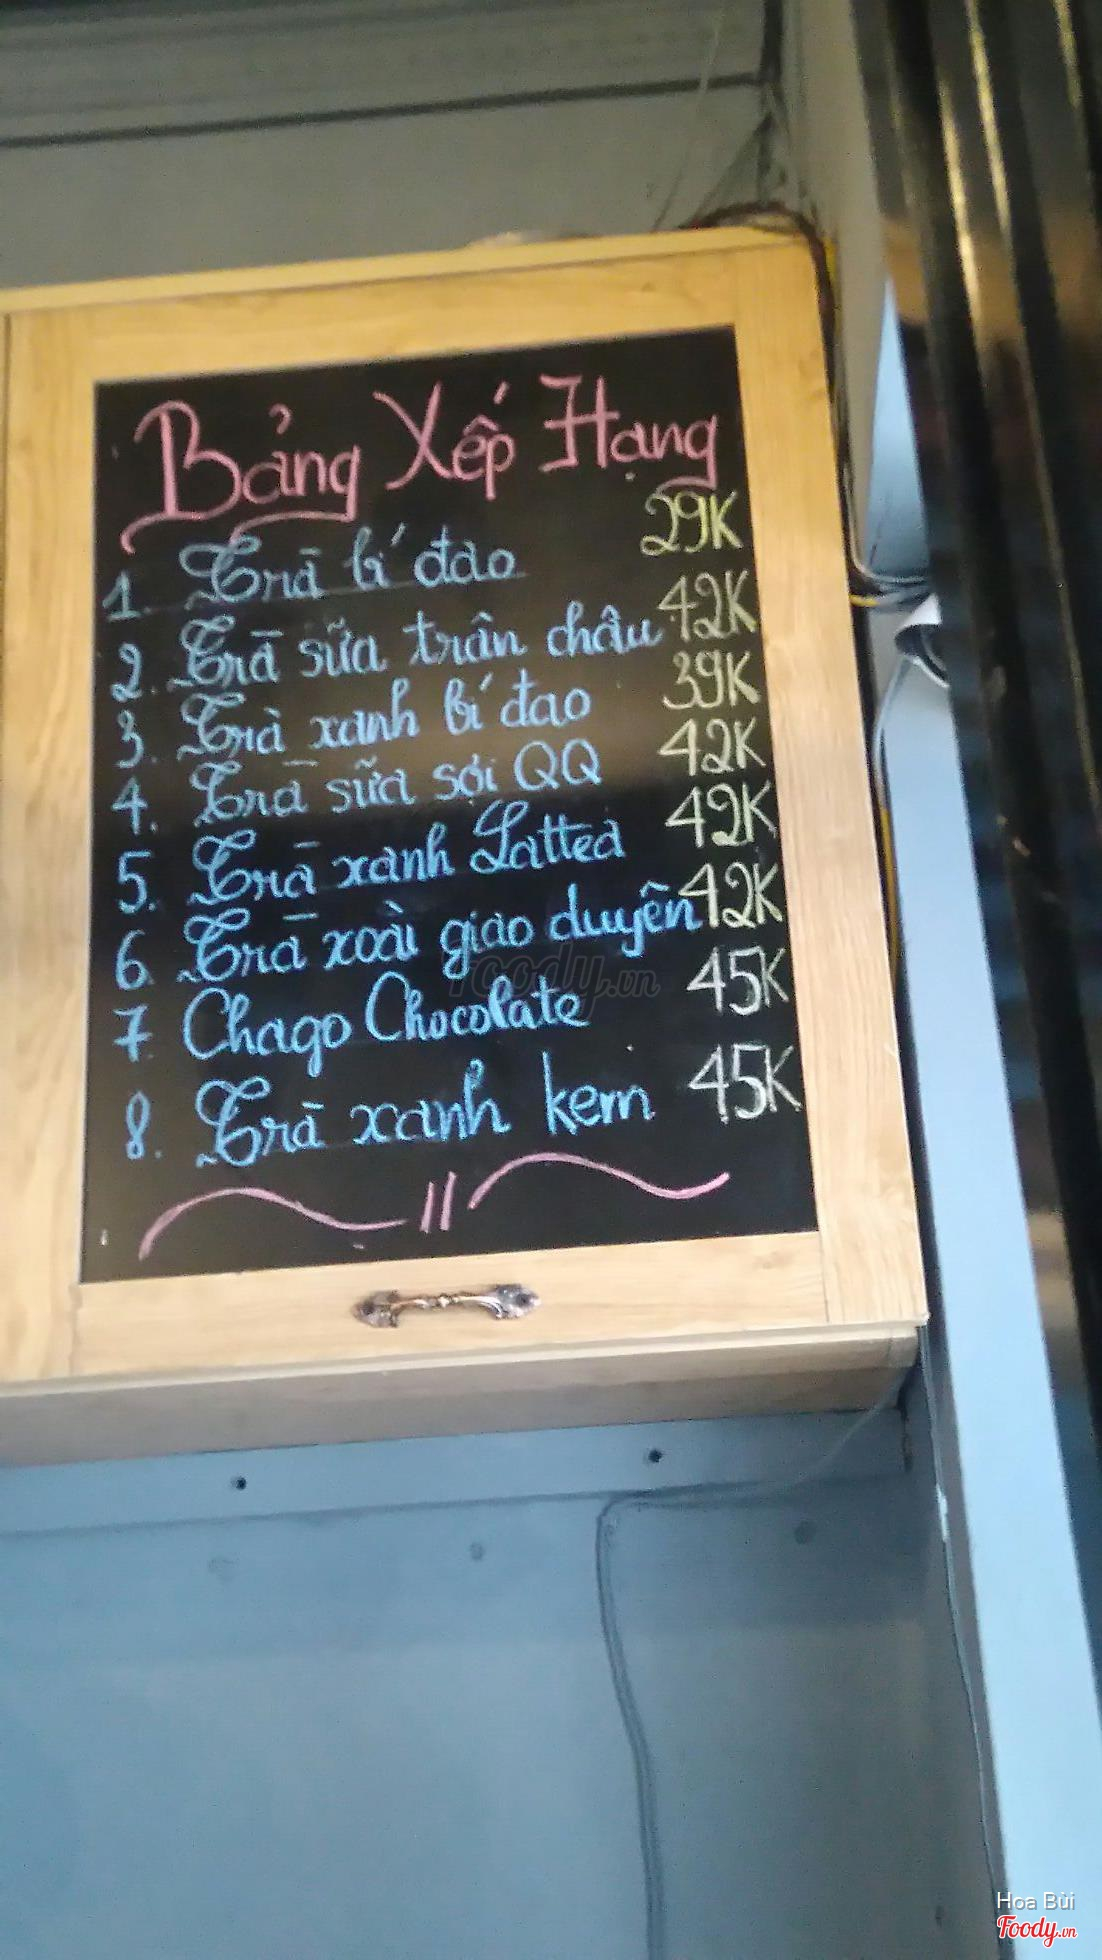 Bảng Xếp Hạng
1. Trà bí đao 29K
2. Trà sữa trân châu 42K
3. Trà xanh bí đao 39K
4. Trà sữa sợi QQ 42K
5. Trà xanh Lattea 42K
6. Trà xoài giao duyên 42K
7. Chago Chocolate 45K
8. Trà xanh kem 45K
foody.vn
Hoa Bùi
Foody.vn